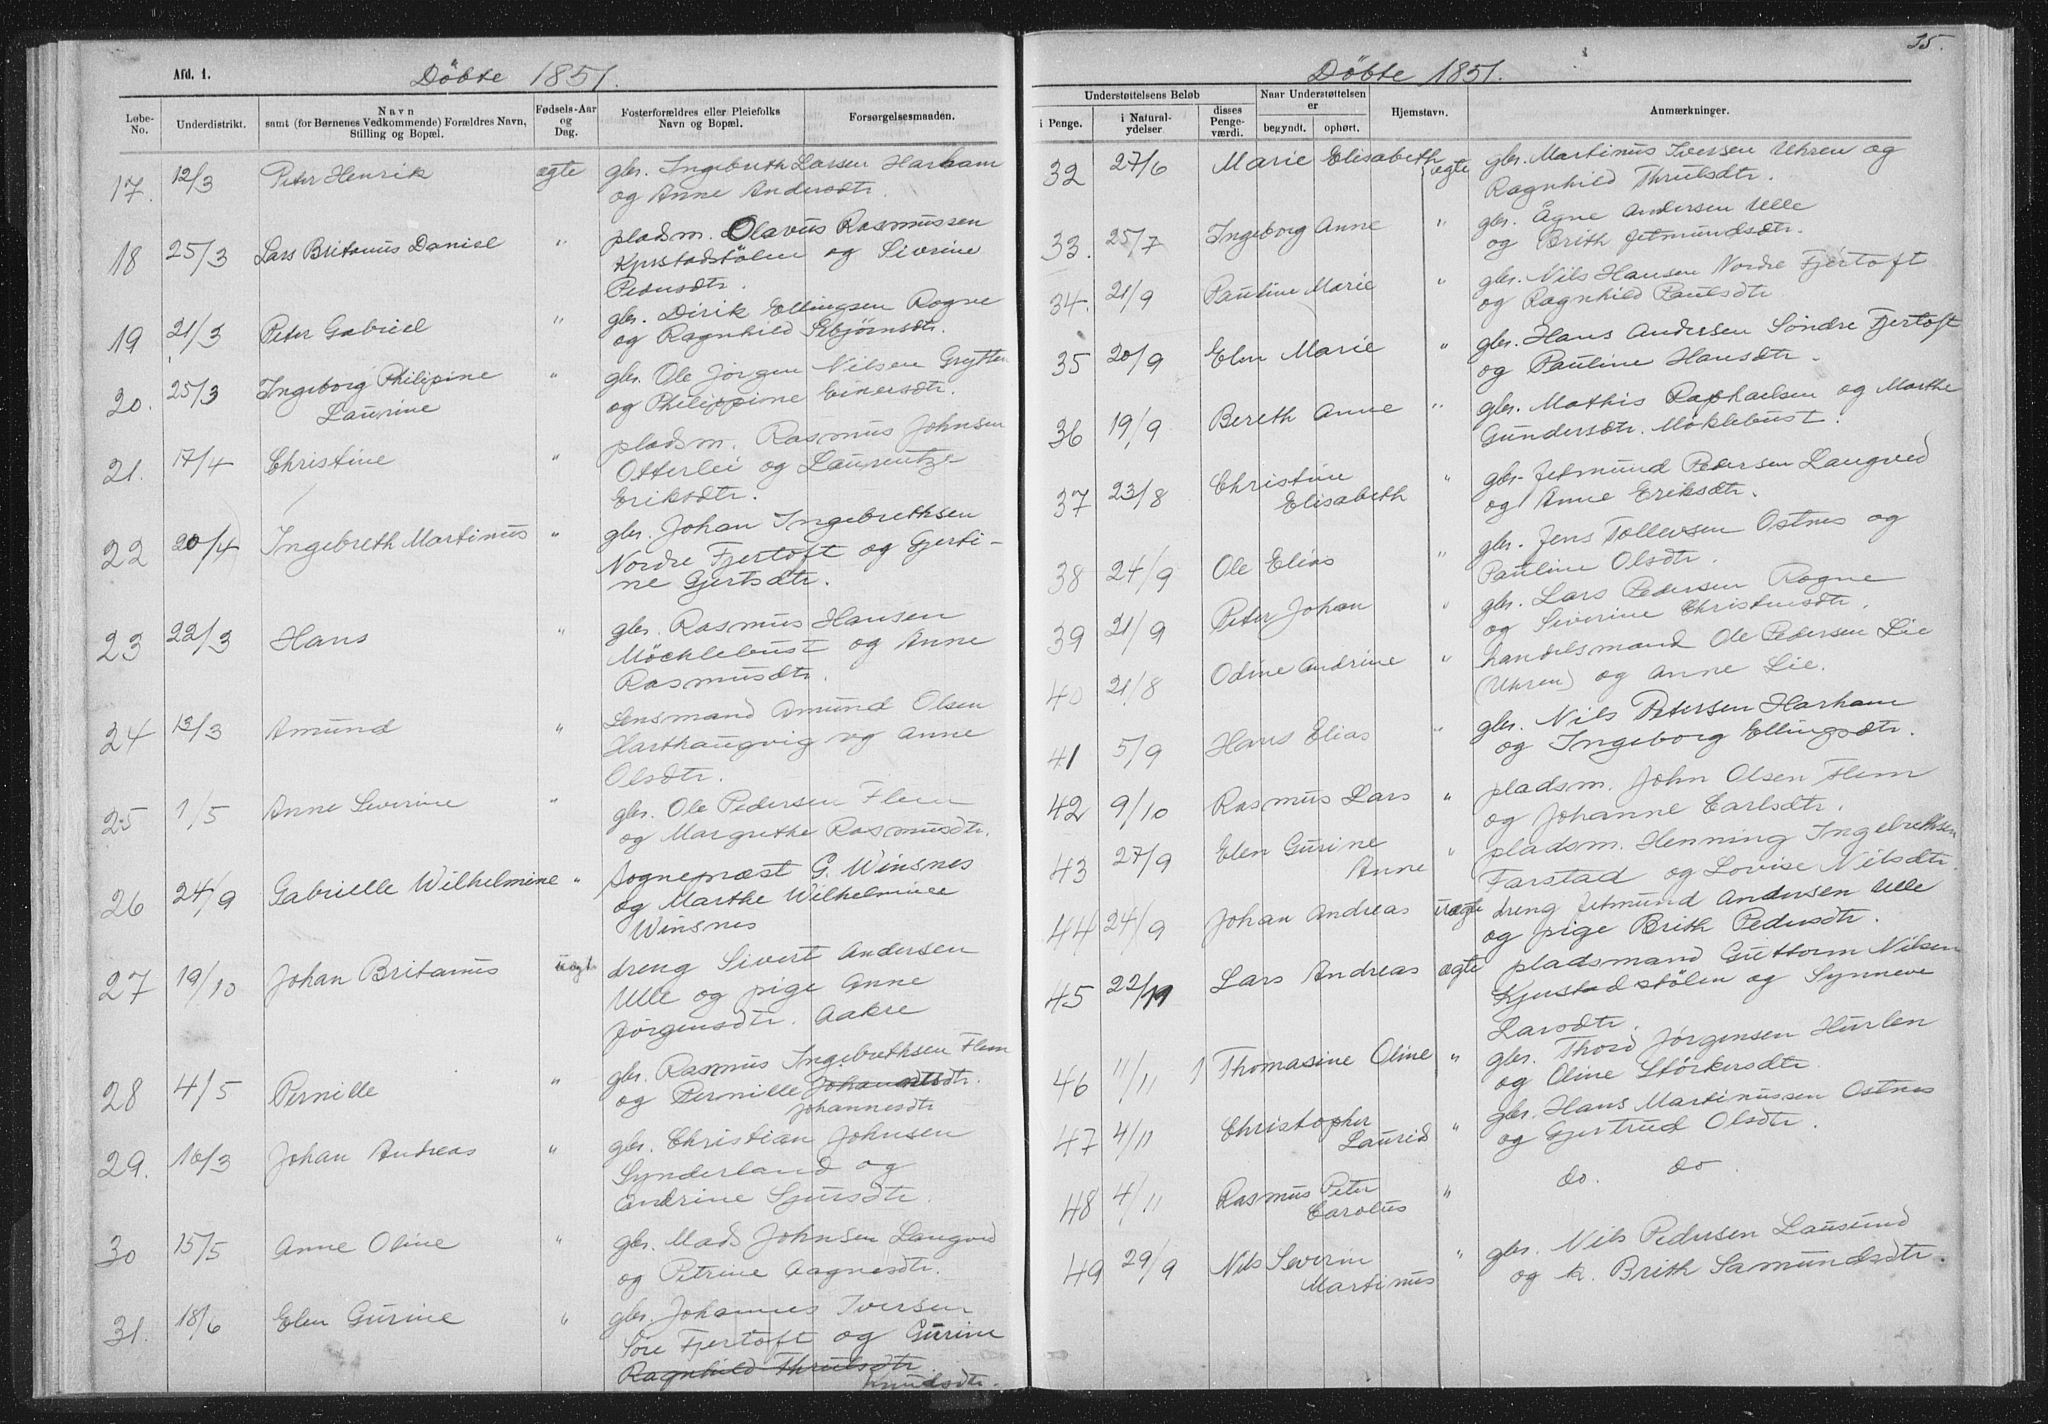 Afd. 1.
Döbte 1851.
Løbe-No.
Underdistrikt.
Navn
samt (for Børnenes Vedkommende) Forældres Navn,
Stilling og Bopæl.
Fødsels-Aar
og
Dag.
Fosterforældres eller Pleiefolks
Navn og Bopæl.
Forsørgelsesmaaden.
17. 12/3 Peter Henrik ægte gbr. Ingebrith Larsen Harham
og Anne Andersdtr.
18 25/3 Lars Britanus Daniel " pladsm. Olavus Rasmussen
Kjerstadstölen og Siverine
Pedersdtr.
19 21/3 Peter Gabriel " gbr. Dirik Ellingsen Rogne
og Ragnhild Esbjørnsdtr.
20. 25/3 Ingeborg Philipine
Laurine " gbr. Ole Jörgen Nilsen Grytten
og Philippine Einersdtr.
21. 17/4 Christine " pladsm. Rasmus Johnsen
Otterlei og Laurentze
Eriksdtr.
22 20/4 Ingebreth Martinus " gbr. Johan Ingebrethsen
Nordre Fjertoft og Gjerti-
ne Gjertsdtr.
23 22/3 Hans " gbr. Rasmus Hansen
Möcklebust og Anne
Rasmusdtr.
24 13/3 Amund " Lensmand Amund Olsen
Harthaugvig og Anne
Olsdtr.
25 1/5 Anne Severine " gbr. Ole Pedersen Flem
og Margrethe Rasmusdtr.
26 24/9 Gabrielle Wilhelmine " Sognepræst G. Winsnes
og Marthe Wilhelmine
Winsnes
27 19/10 Johan Britanus uægt. dreng Sivert Andersen
Ulle og pige Anne
Jörgensdtr. Aakre
28 4/5 Pernille " gbr. Rasmus Ingebrethsen Flem
og Pernille Johannesdtr.
Johannesdtr
29. 16/3 Johan Andreas " gbr. Christian Johnsen
Synderland og
Andrine Sjursdtr.
30 15/5 Anne Oline " gbr. Mads Johnsen Langved
og Petrine Aagnesdtr.
31. 18/6 Elen Gurine " gbr. Johannes Iversen
Söre Fjertoft og Gurine
Ragnhild Thrulsdtr
Knudsdtr.
35.
Döbte 1851.
Understøttelsens Beløb
i Penge.
i Natural-
ydelser
disses
Penge-
værdi.
Naar Understøttelsen
er
begyndt.
ophørt.
Hjemstavn.
Anmærkninger.
32 27/6 Marie Elisabeth ægte gbr. Martinus Iversen Uhren og
Ragnhild Thrulsdtr.
33. 25/7 Ingeborg Anne " gbr. Ågne Andersen Ulle
og Brith Jetmundsdtr.
34. 21/9 Pauline Marie " gbr. Nils Hansen Nordre Fjertoft
og Ragnhild Paulsdtr
35 20/9 Elen Marie " gbr. Hans Andersen Söndre Fjertoft
og Pauline Hansdtr.
36 19/9 Bereth Anne " gbr. Mathis Raphaelsen og Marthe
Gundersdtr. Möklebust.
37 23/8 Christine
Elisabeth " gbr. Jetmund Pedersen Langved
og Anne Eriksdtr.
38 24/9 Ole Elias " gbr. Jens Tollevsen Ostnes og
Pauline Olsdtr.
39 21/9 Peter Johan " gbr. Lars Pedersen Rogne
og Siverine Christensdtr.
40 21/8 Odine Andrine " handelsmand Ole Pedersen Lie
(Uhren) og Anne Lie.
41 5/9 Hans Elias " gbr. Nils Petersen Harham
og Ingeborg Ellingsdtr.
42 9/10 Rasmus Lars " pladsm. John Olsen Flem
og Johanne Carlsdtr.
43 27/9 Elen Gurine
Anne " pladsm. Henning Ingebrethsen
Farstad og Lovise Nilsdtr.
44 24/9 Johan Andreas uægte dreng Jetmund Andersen Ulle
og pige Brith Pedersdtr.
45 22/11 Lars Andreas ægte pladsmand Guttorm Nilsen
Kjerstadstölen og Synneve
Larsdtr.
46 11/11 Thomasine Oline " gbr. Thord Jörgensen Hurlen
og Oline Störkersdtr.
47 4/11 Christopher
Laurid " gbr. Hans Martinussen Ostnes
og Gjertrud Olsdtr.
48 4/11 Rasmus Peter
Carolus " do. do.
49 29/9 Nils Severin
Martinus " gbr. Nils Pedersen Lausund
og k. Brith Samundsdtr.